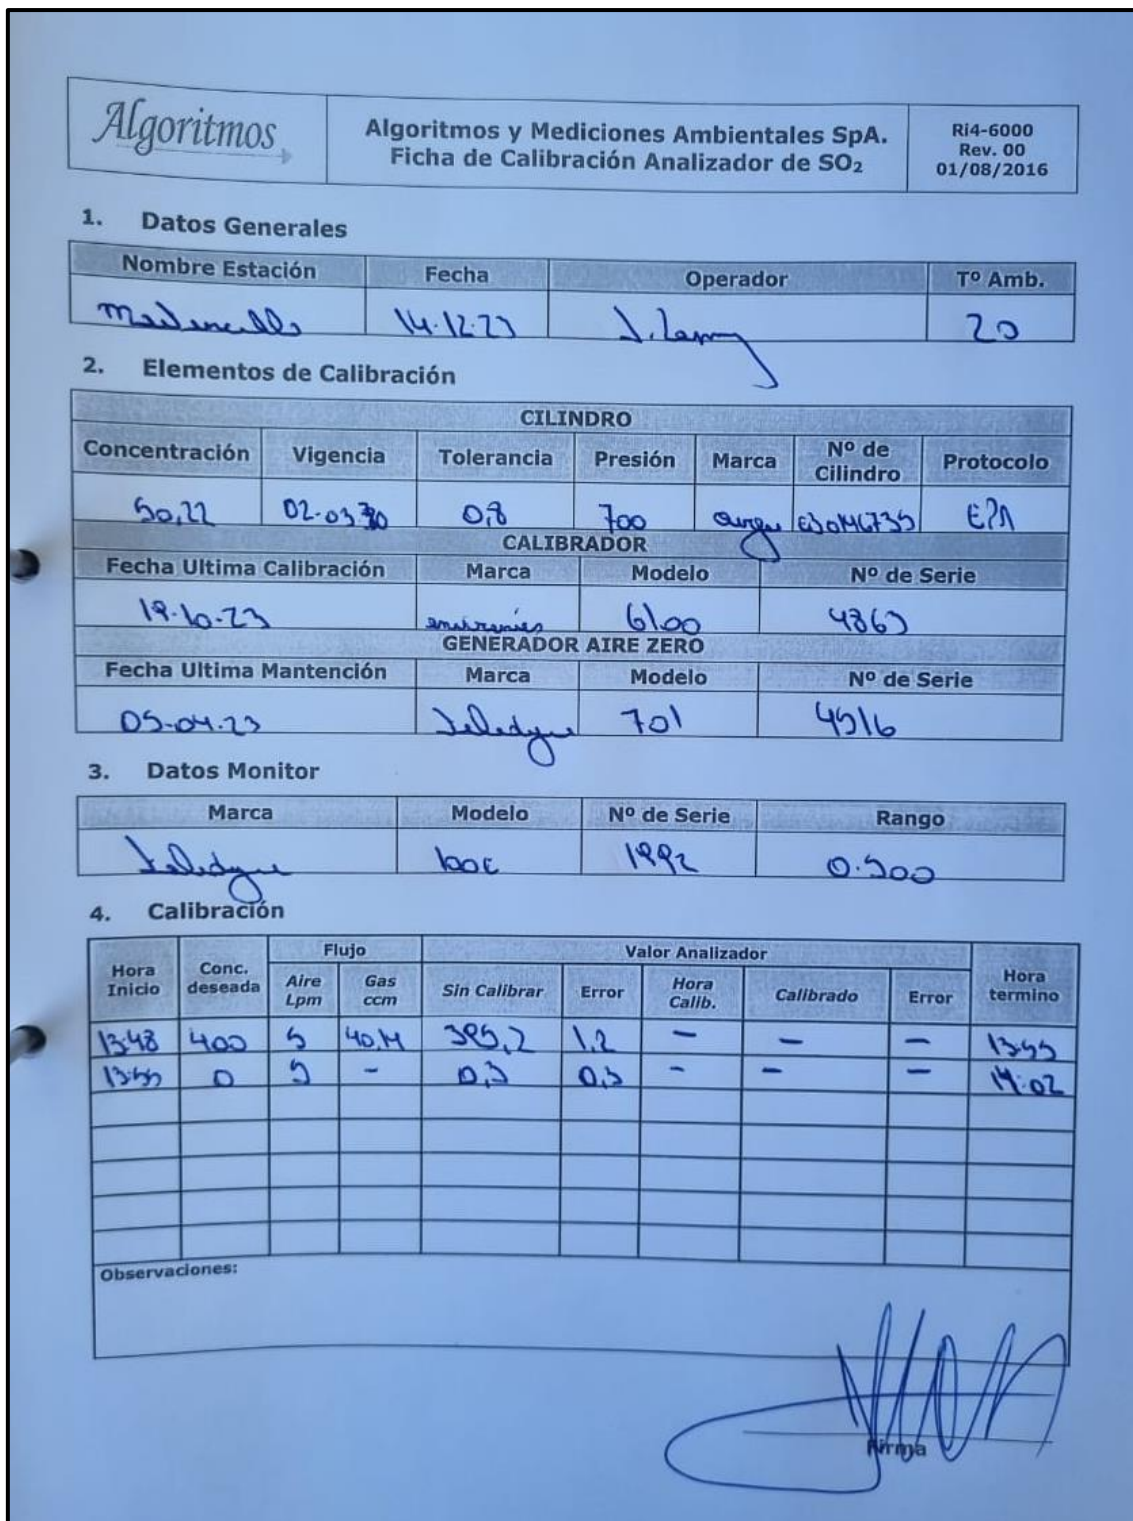 Algoritmos
Algoritmos y Mediciones Ambientales SpA.
Ficha de Calibración Analizador de SO₂
Ri4-6000
Rev. 00
01/08/2016
1. Datos Generales
Nombre Estación Fecha Operador Tº Amb.
14.12.23 20
2. Elementos de Calibración
CILINDRO
Concentración Vigencia Tolerancia Presión Marca Nº de Cilindro Protocolo
50,22 0,8 700 EPA
CALIBRADOR
Fecha Ultima Calibración Marca Modelo Nº de Serie
19.10.23 6100 4863
GENERADOR AIRE ZERO
Fecha Ultima Mantención Marca Modelo Nº de Serie
05-04-23 Teledyne 701 4516
3. Datos Monitor
Marca Modelo Nº de Serie Rango
Teledyne 100E 1992 0-500
4. Calibración
Hora Inicio Conc. deseada Flujo Valor Analizador Hora termino
Aire Lpm Gas ccm Sin Calibrar Error Hora Calib. Calibrado Error
13:48 400 5 40,14 395,2 1,2 – – – 13:55
13:55 0 5 – 0,3 0,3 – – – 14:02
Observaciones:
Firma